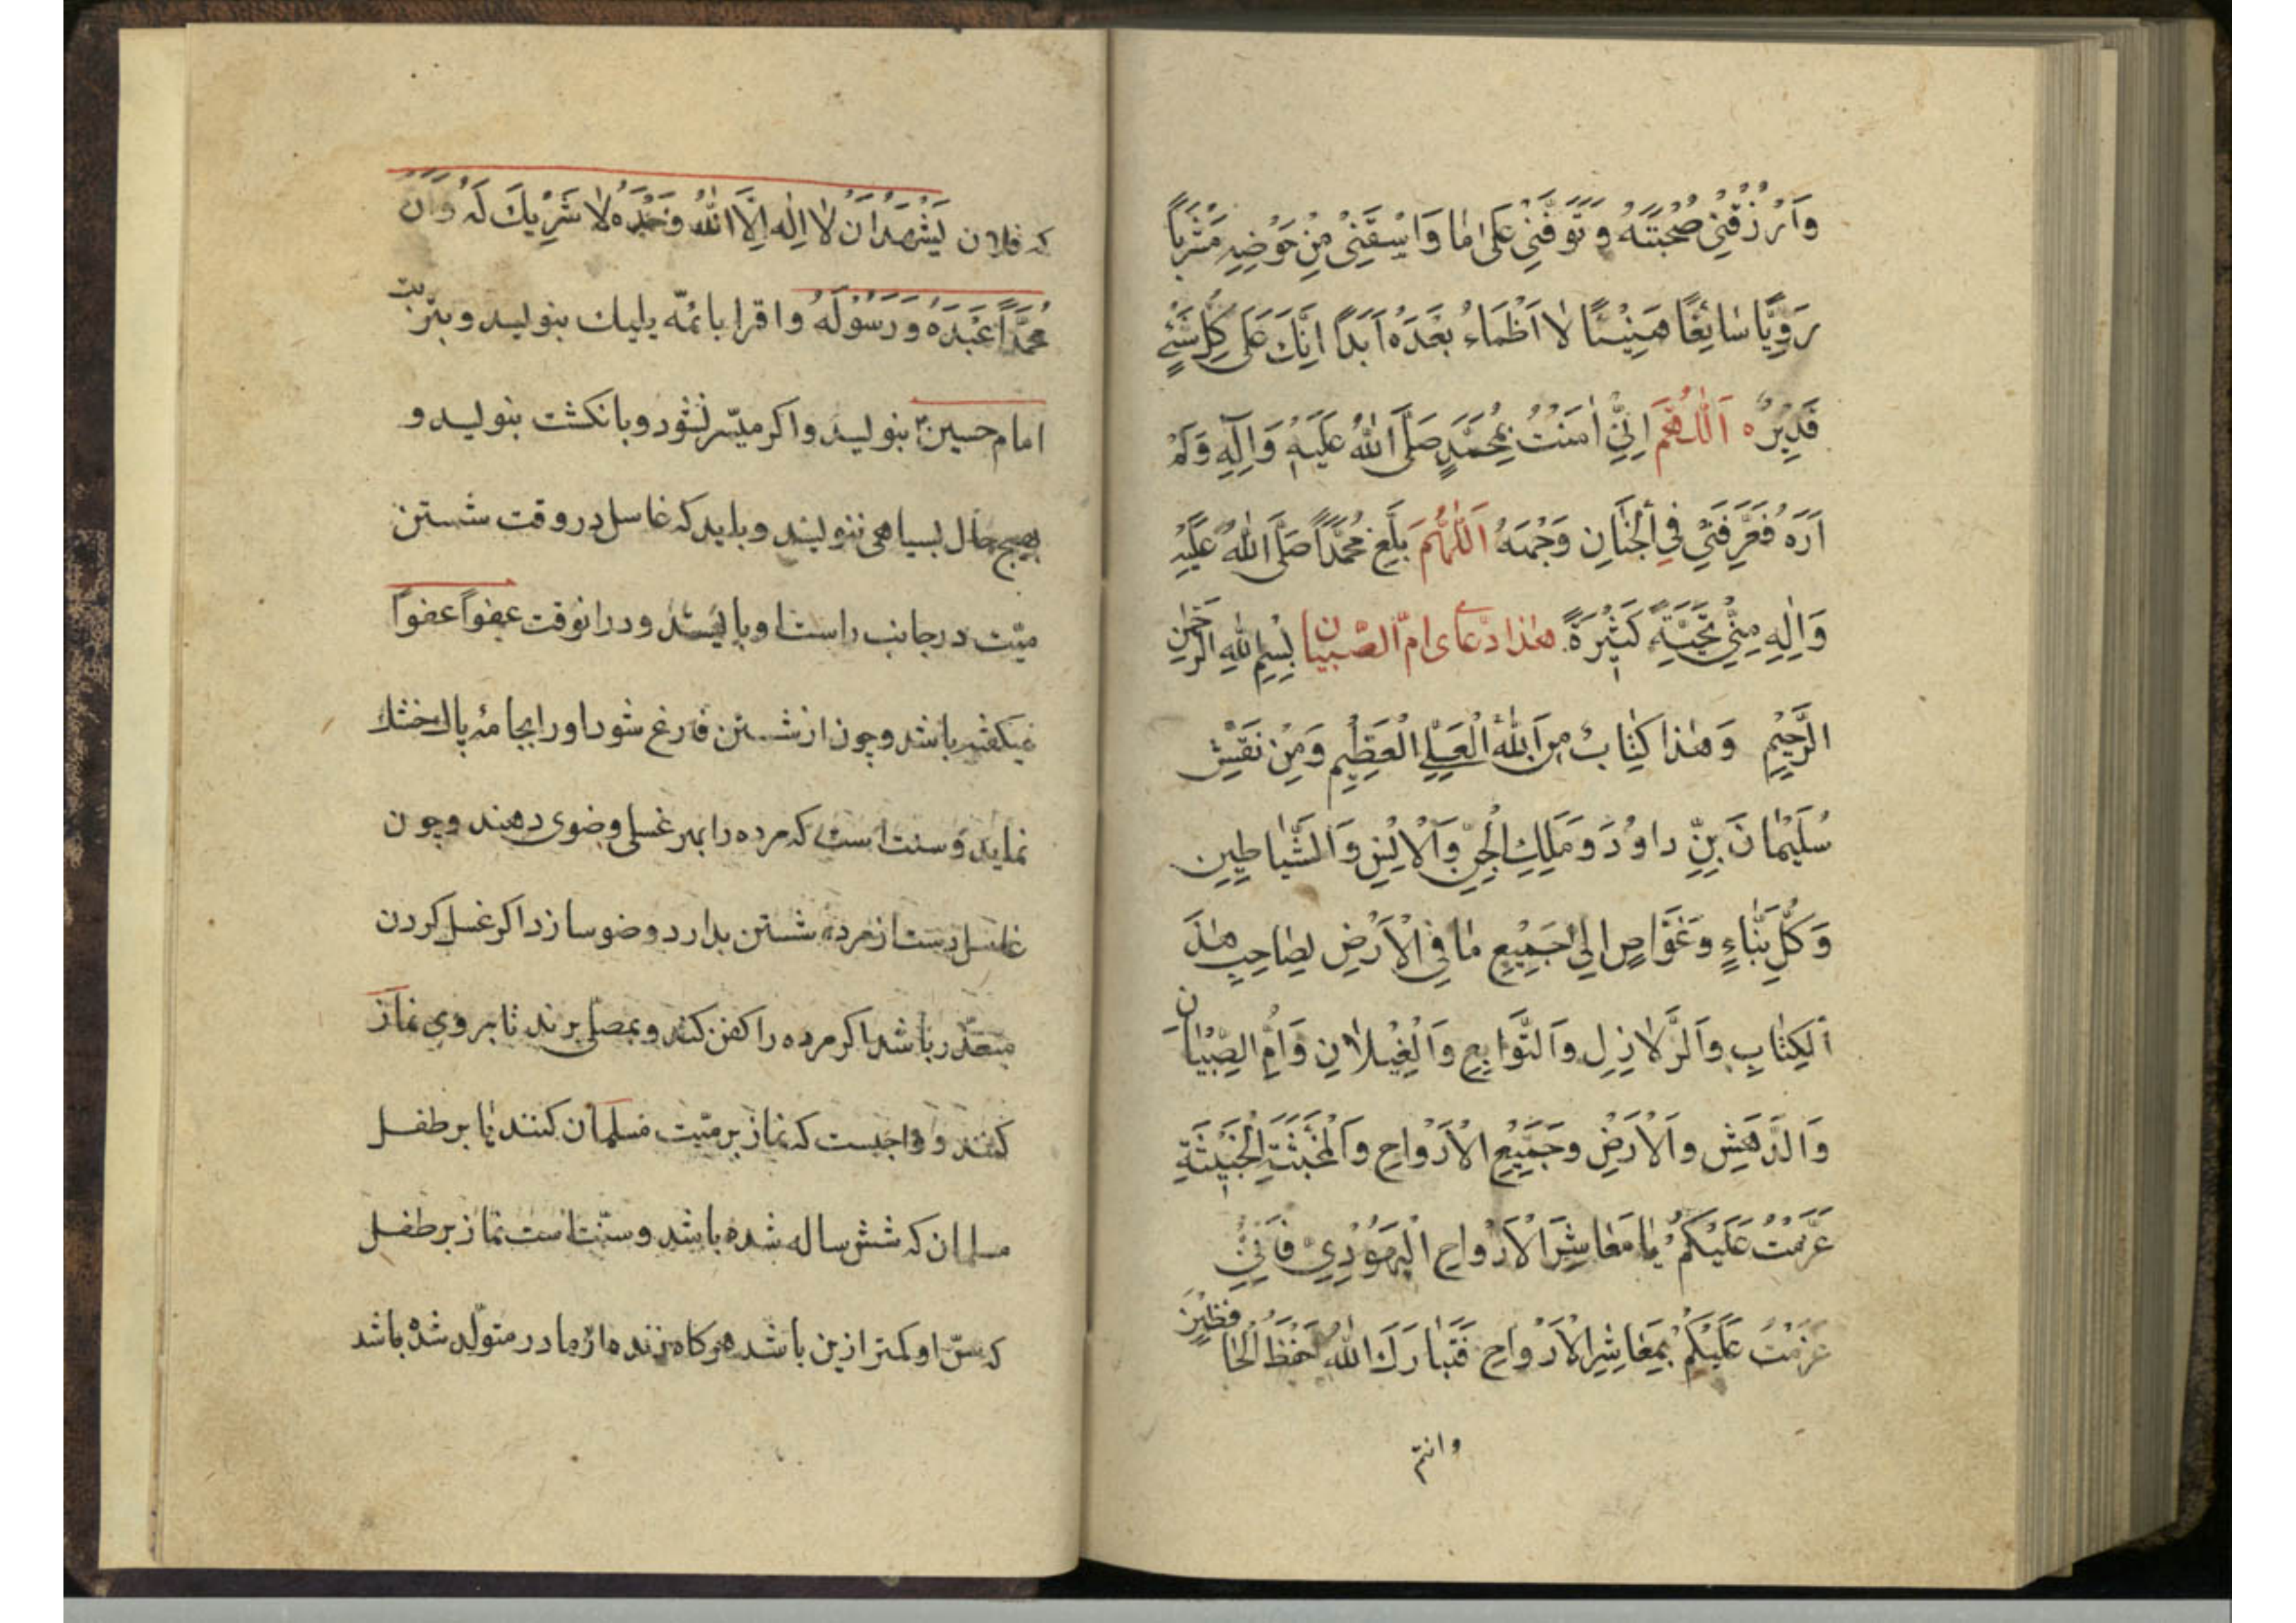 وَارْزُقْنِی صُحْبَتَهُ وَتَوَفَّنِی عَلیٰ مٰا وَاسْقِنِی مِنْ حَوْضِهِ مَشْرَباً
رَوِیًّا سٰائِغًا هَنِیْئًا لٰا اَظْمَاءُ بَعْدَهُ اَبَدًا اِنَّكَ عَلیَ كُلِّ شَیْءٍ
قَدِیْرٌ ه اَللّٰهُمَّ اِنِّی اٰمَنْتُ بِمُحَمَّدٍ صَلَّی اللّٰهُ عَلَیْهِ وَاٰلِهِ وَلَمْ
اَرَهُ فَعَرِّفْنِی فِی الْجَنٰانِ وَجْهَهُ اَللّٰهُمَّ بَلِّغْ مُحَمَّدًا صَلَّی اللّٰهُ عَلَیْهِ
وَاٰلِهِ مِنِّی تَحِیَّةً كَثِیْرَةً هٰذا دعٰای امّ الصّبیان بِسْمِ اللّٰهِ الرَّحْمٰنِ
الرَّحِیْمِ وَهٰذا كِتٰابٌ مِنَ اللّٰهِ الْعَلِیِّ الْعَظِیْمِ وَمِنْ نَقْشِ
سُلَیْمٰانَ بِنِّ داوُدَ وَمَلِكِ الْجِنِّ وَالْاِنْسِ وَالشَّیٰاطِینِ
وَكُلِّ بَنّٰاءٍ وَغَوّٰاصٍ اِلیٰ جَمِیْعِ مٰا فِی الْاَرْضِ لِصٰاحِبِ هٰذَ
الْكِتٰابِ وَالزَّلٰازِلِ وَالتَّوٰابِعِ وَالْغِیْلٰانِ وَاُمِّ الصِّبْیٰانِ
وَالدَّهَشِ وَالْاَرْضِ وَجَمِیْعِ الْاَرْوٰاحِ وَالْمُخَبَّثَةِ الْخَبِیْثَةِ
عَزَمْتُ عَلَیْكُمْ یٰا مَعٰاشِرَ الْاَرْوٰاحِ الْیَهُوْدِیِّ فَاِنِّی
عَزَمْتُ عَلَیْكُمْ بِمَعٰاشِرِ الْاَرْوٰاحِ فَتَبٰارَكَ اللّٰهُ حَفِظُ الْحٰافِظِیْنَ
وانتم
كه فلان یَشْهَدُ اَنْ لٰا اِلٰهَ اِلَّا اللّٰهُ وَحْدَهُ لٰا شَرِیْكَ لَهُ وَاَنَّ
مُحَمَّدًا عَبْدَهُ وَرَسُوْلَهُ واقرا بائمّه یلیك بنویسد وبتربت
امام حسینؑ بنویسد واكر میسّر نشود وبانكشت بنویسد و
بهیج حال بسیاهی ننویسند وباید كه غاسل در وقت شستن
میّت در جانب راست او بایستد ودر انوقت عفواً عفواً
میكفته باشد وچون از شستن فارغ شود او را بجامهٔ پاك خشك
نماید وسنت است كه مرده را بهر غسلی وضوی دهند وچون
غاسل دست از مرده شستن بدارد وضو سازد اكر غسل كردن
متعذّر باشد اكر مرده را كفن كند وبمصلی برند تا بروی نماز
كنند و واجبست كه نماز بر میّت مسلمان كنند یا بر طفل
مسلمان كه شش ساله شده باشد وسنّت است نماز بر طفل
كه سنّ او كمتر ازین باشد هركاه زنده از مادر متولّد شده باشد